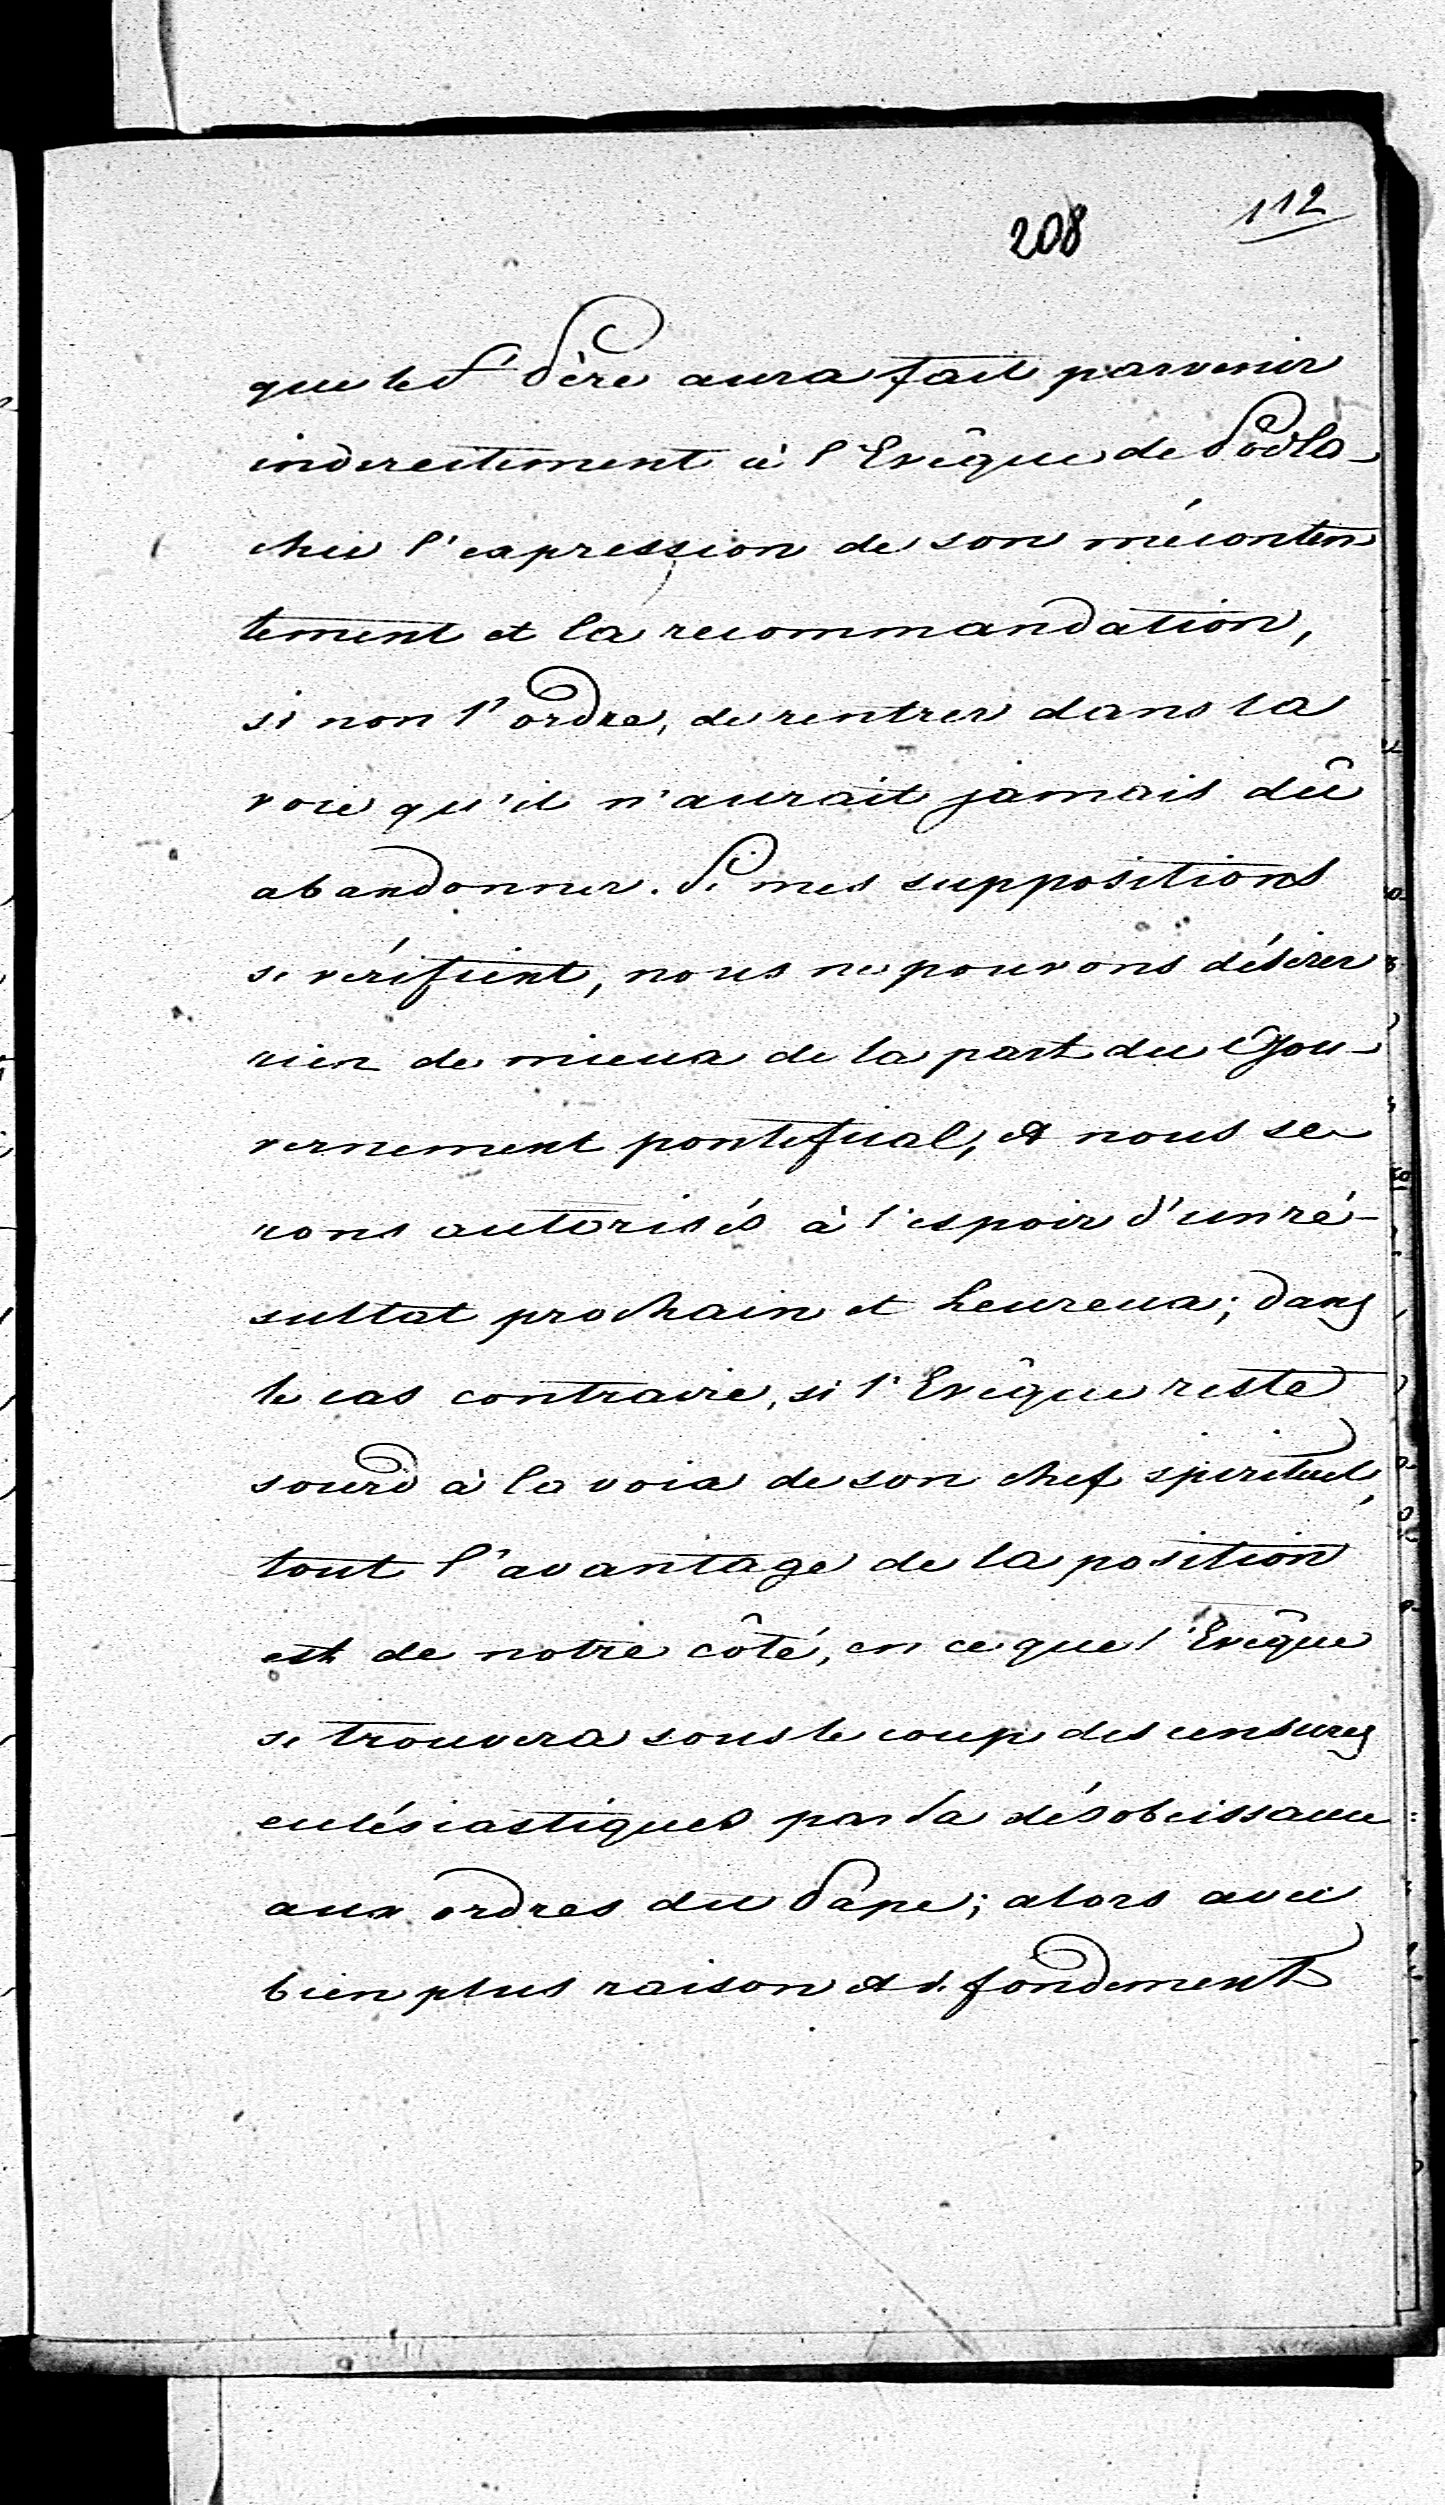 112
208
que le St Père aura fait parvenir
indirectement à l'Evêque de Podla-
chie l'expression de son méconten
tement et la recommandation,
si non l'ordre, de rentrer dans la
voie qu'il n'aurait jamais dû
abandonner. Si mes suppositions
se vérifient, nous ne pouvons désirer
rien de mieux de la part du Gou-
vernement pontifical, et nous se
rons autorisés à l'espoir d'un ré-
sultat prochain et heureux; dans
le cas contraire, si l'Evêque reste
sourd à la voix de son chef spirituel,
tout l'avantage de la position
est de notre côté, en ce que l'Evêque
se trouvera sous le coup des censures
eclésiastiques par sa désobeissance
aux ordres du Pape; alors avec
bien plus raison et de fondement